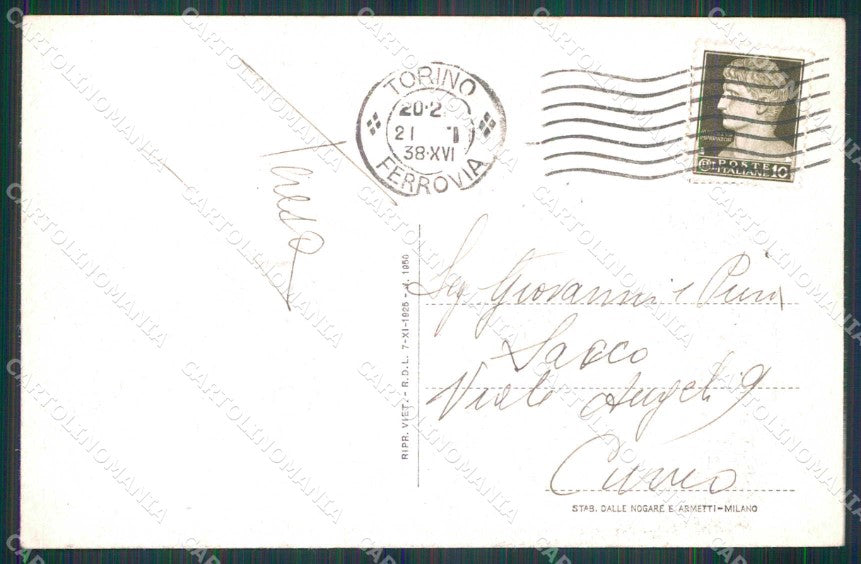 TORINO
20·2
21 1
38·XVI
FERROVIA
POSTE
ITALIANE 10
Teresa
RIPR. VIET. - R.D.L. 7-XI-1925 - N. 1950
Sig Giovanni e Piera
Sacco
Viale Angeli 9
Cuneo
STAB. DALLE NOGARE E ARMETTI-MILANO
CARTOLINOMANIA